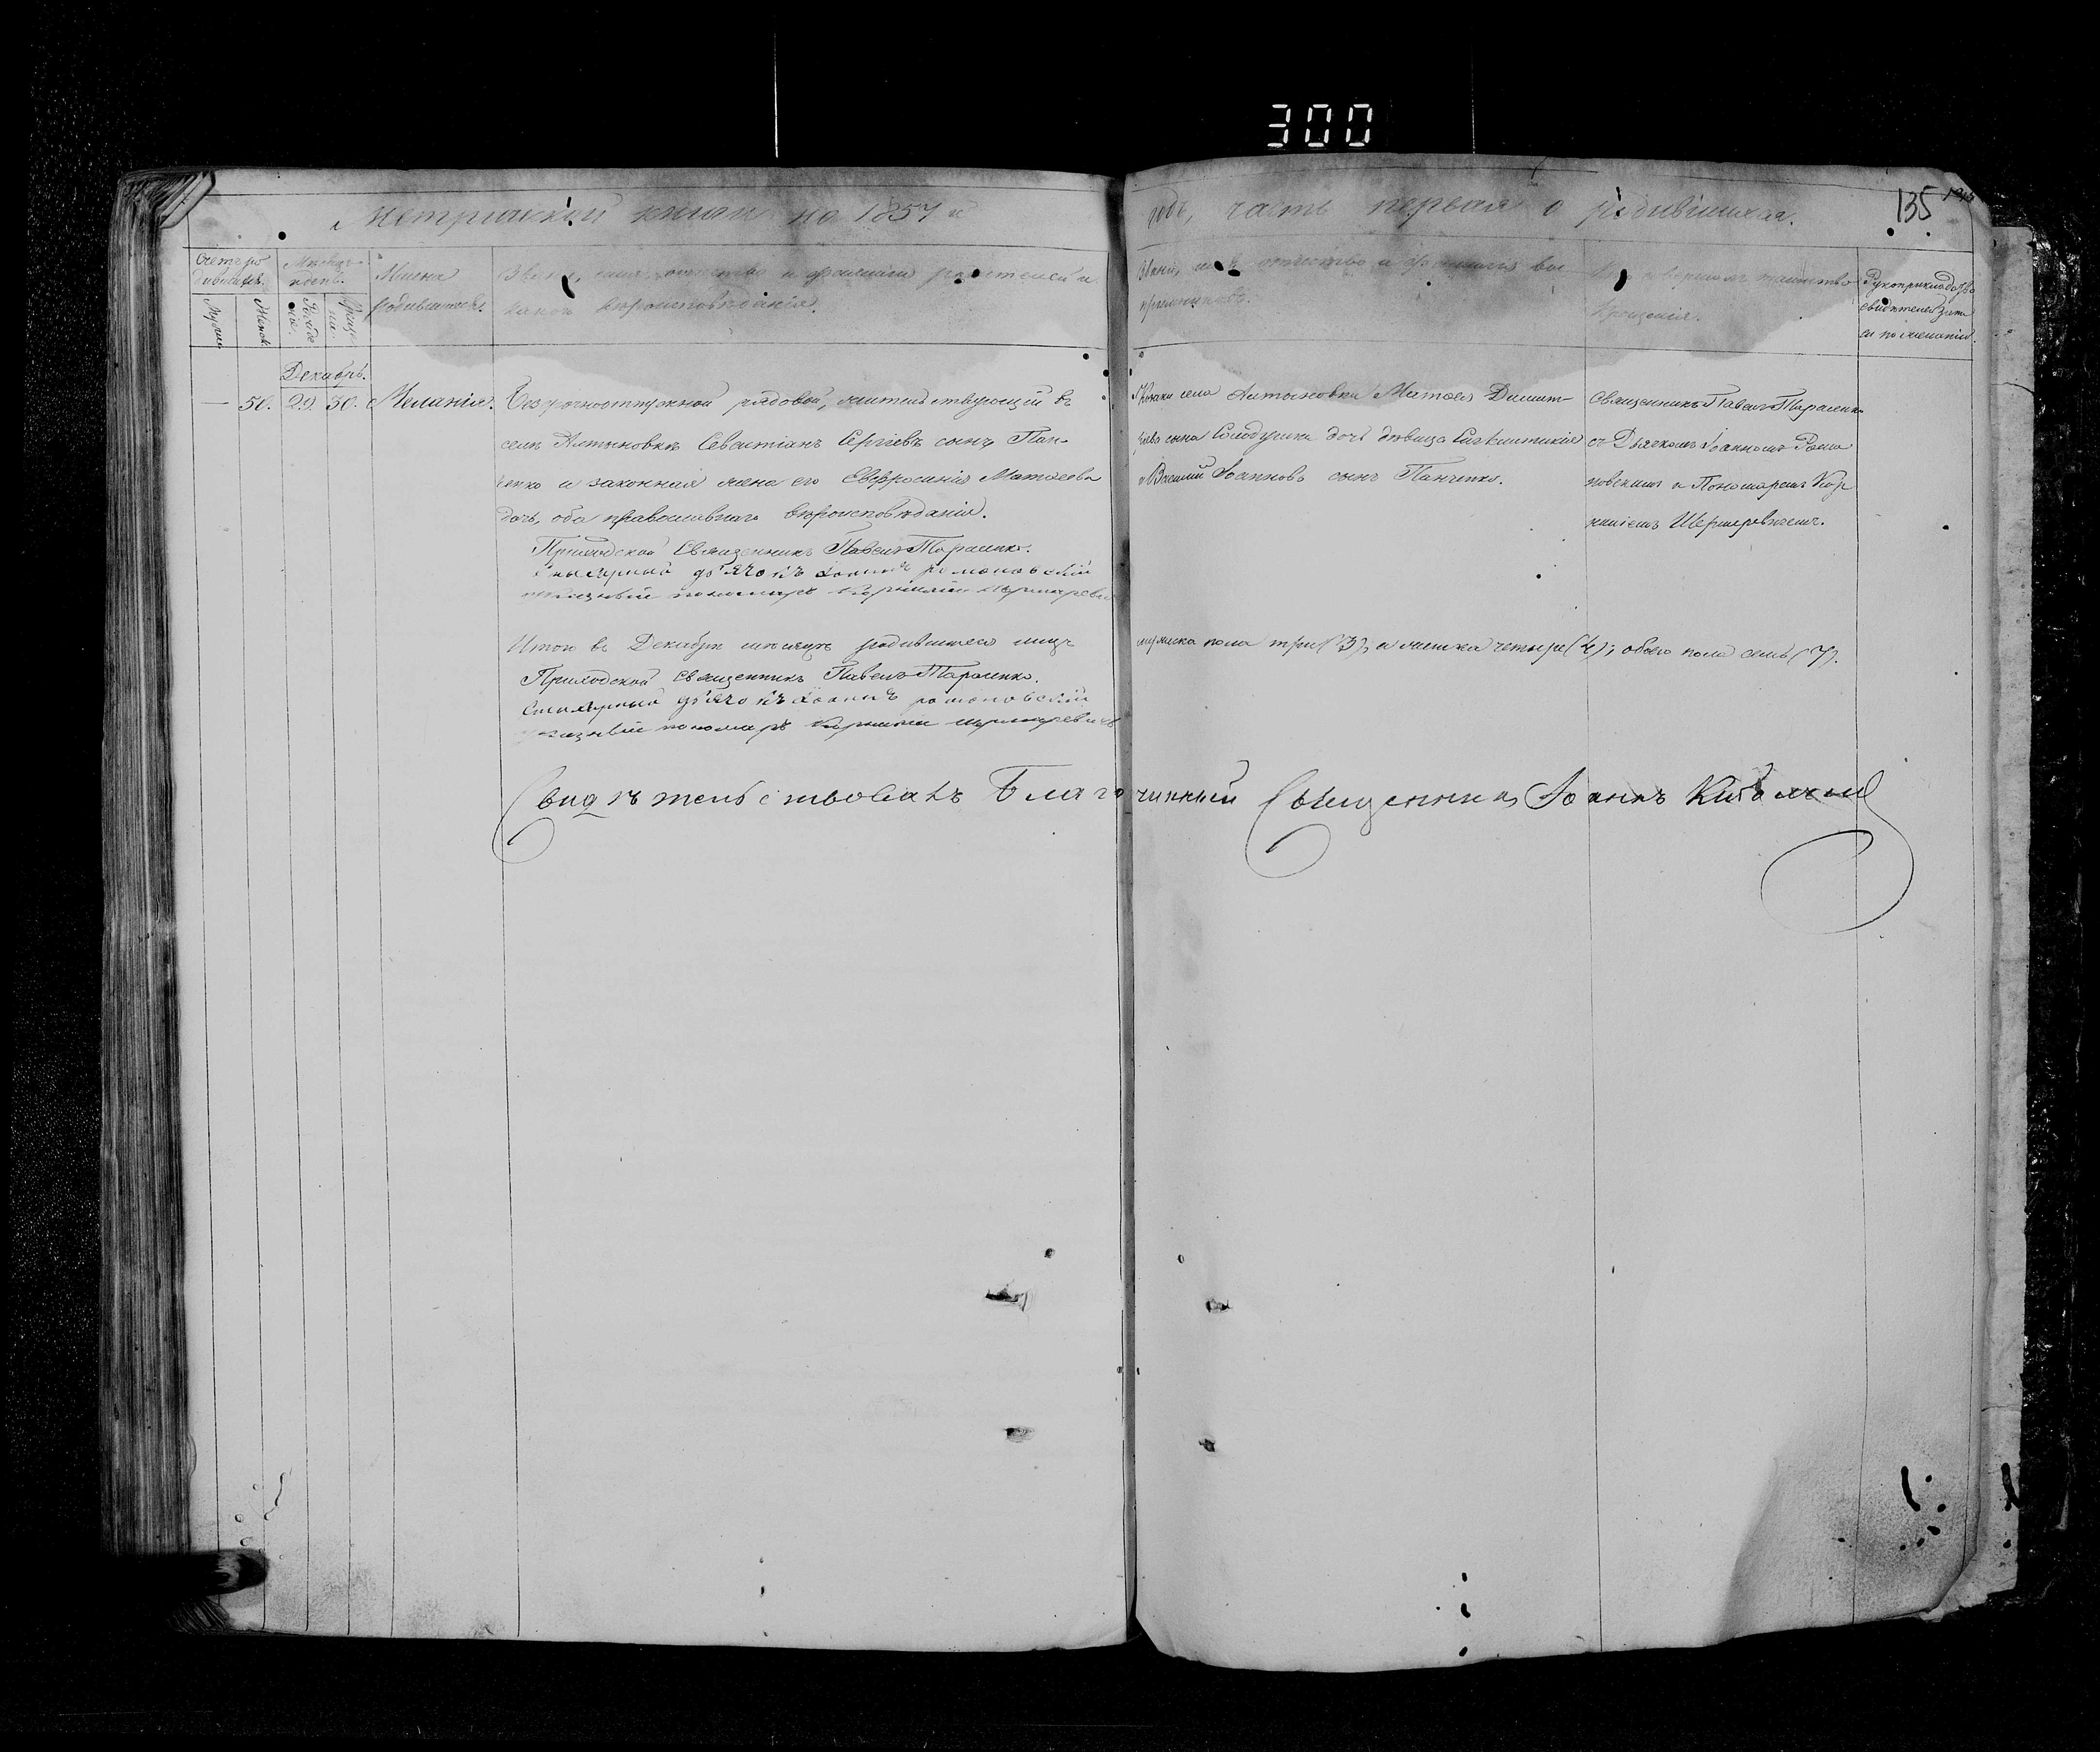 300
135
Метрической книги на 1857 й
годъ, часть первая о родившихся.
Счетъ ро
дившихся.
Мѣсяцъ
и день.
Имена
родившихся.
Званіе, имя, отчество и фамилія родителей и
какого вѣроисповѣданія.
Званіе, имя, отчество и фамилія вос
пріемниковъ.
Кто совершалъ таинство
крещенія.
Рукоприкладство
свидѣтелей запи
си по желанію.
Декабрь.
— 50. 29. 30. Меланія.
Безсрочноотпускной рядовой, жительствующій въ
селѣ Алтыновкѣ Севастіанъ Сергіевъ сынъ Пан-
ченко и законная жена его Евфросинія Матѳеева
дочь, оба православнаго вѣроисповѣданія.
Приходской Священникъ Павелъ Тарасенко.
Стихарный дьячокъ Іоаннъ романовскій
пономарь
Козака села Алтыновки Матѳея Димит-
ріева сына Солодушки дочь дѣвица
и Василій Іоанновъ сынъ Панченко.
Священникъ Павелъ Тарасенко
съ Дьячкомъ Іоанномъ Рома
новскимъ и Пономаремъ Кор
ниліемъ
Итого въ Декабрѣ мѣсяцѣ родившихся лицъ
мужеска пола три (3), а женска четыре (4); обоего пола семь (7).
Приходской Священникъ Павелъ Тарасенко.
Стихарный дьячокъ Іоаннъ романовскій
пономарь
Свидѣтельствовалъ Благочинный Священникъ Іоаннъ